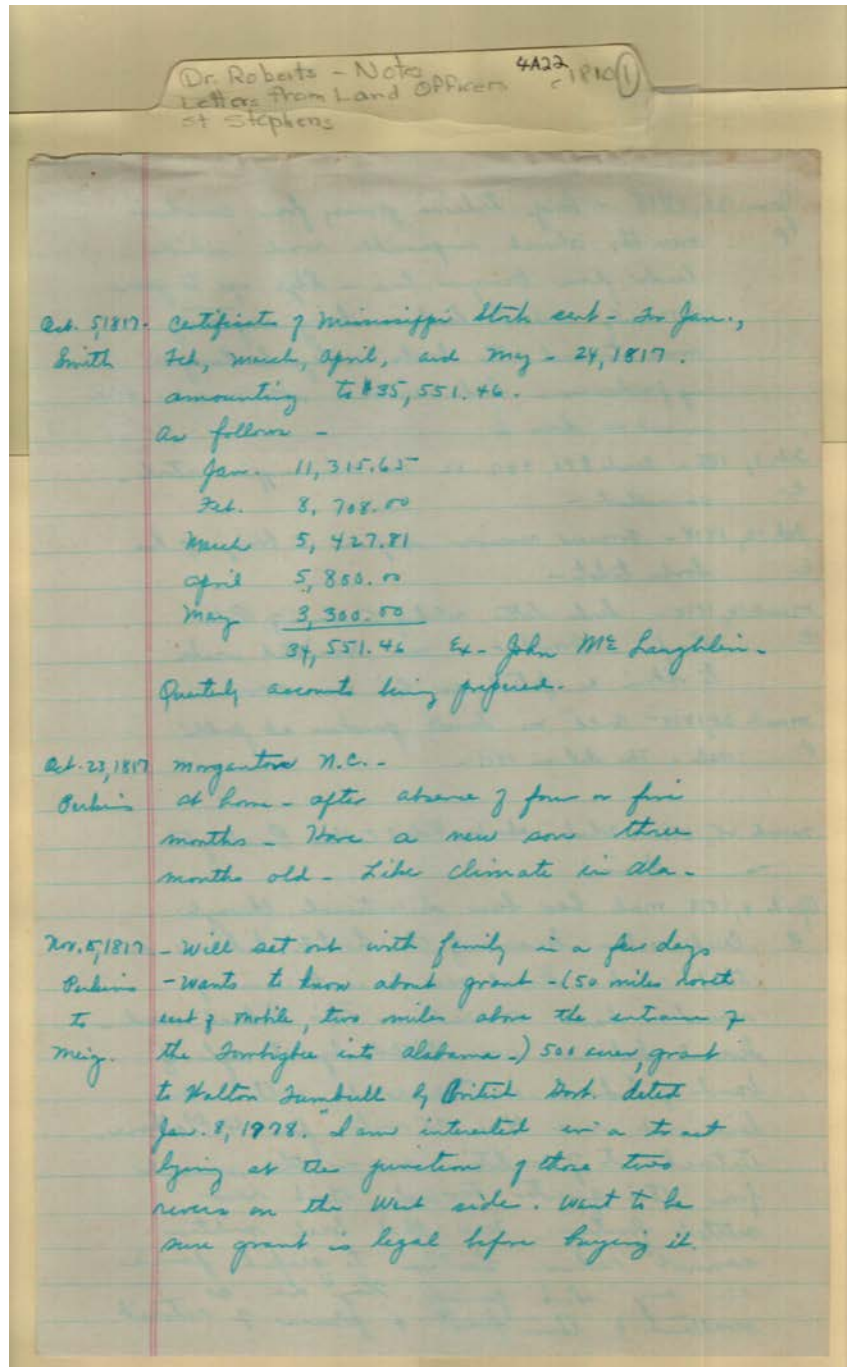 Dr. Roberts - Notes 4A22
Letters from Land Officers - 1810 (1)
St Stephens
Oct. 5, 1817 - Certificates of Mississippi Stock sent - for Jan.,
Smith Feb, March, April, and May - 24, 1817.
amounting to $35,551.46.
As follows -
Jan. 11,315.65
Feb. 8,708.00
March 5,427.81
April 5,800.00
May 3,300.00
34,551.46 Ex - John McLaughlin -
Quarterly accounts being prepared.
Oct. 23, 1817 Morganton N.C. -
Perkins at home - after absence of four or five
months - Have a new son three
months old - Like climate in Ala -
Nov. 5, 1817 - Will set out with family in a few days
Perkins - Wants to know about grant - (50 miles north
to east of Mobile, two miles above the entrance of
Meig. the Tombigbee into Alabama -) 500 acres, grant
to Walton Turnbull by British Govt. dated
Jan. 8, 1978. "I am interested in a tract
lying at the junction of those two
rivers on the West side. Want to be
sure grant is legal before buying it.